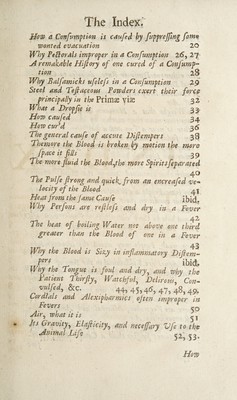 The Index.
How a Consumption is caused by suppressing some
wonted evacuation 20
Why Pectorals improper in a Consumption 26, 27
A remakable History of one cured of a Consump-
tion 28
Why Balsamicks useless in a Consumption 29
Steel and Testaceous Powders exert their force
principally in the Primæ viæ 32
What a Dropsie is 33
How caused 34
How cur'd 36
The general cause of accute Distempers 38
Themore the Blood is broken by motion the more
space it fills 39
The more fluid the Blood, the more Spirits separated
40
The Pulse strong and quick, from an encreased ve-
locity of the Blood 41
Heat from the same Cause ibid.
Why Persons are restless and dry in a Fever
42
The heat of boiling Water not above one third
greater than the Blood of one in a Fever
43
Why the Blood is Sizy in inflammatory Distem-
pers ibid.
Why the Tongue is foul and dry, and why the
Patient Thirsty, Watchful, Delirous, Con-
vulsed, &c. 44, 45, 46, 47, 48, 49.
Cordials and Alexipharmics often improper in
Fevers 50
Air, what it is 51
Its Gravity, Elasticity, and necessary Use to the
Animal Life 52, 53.
How